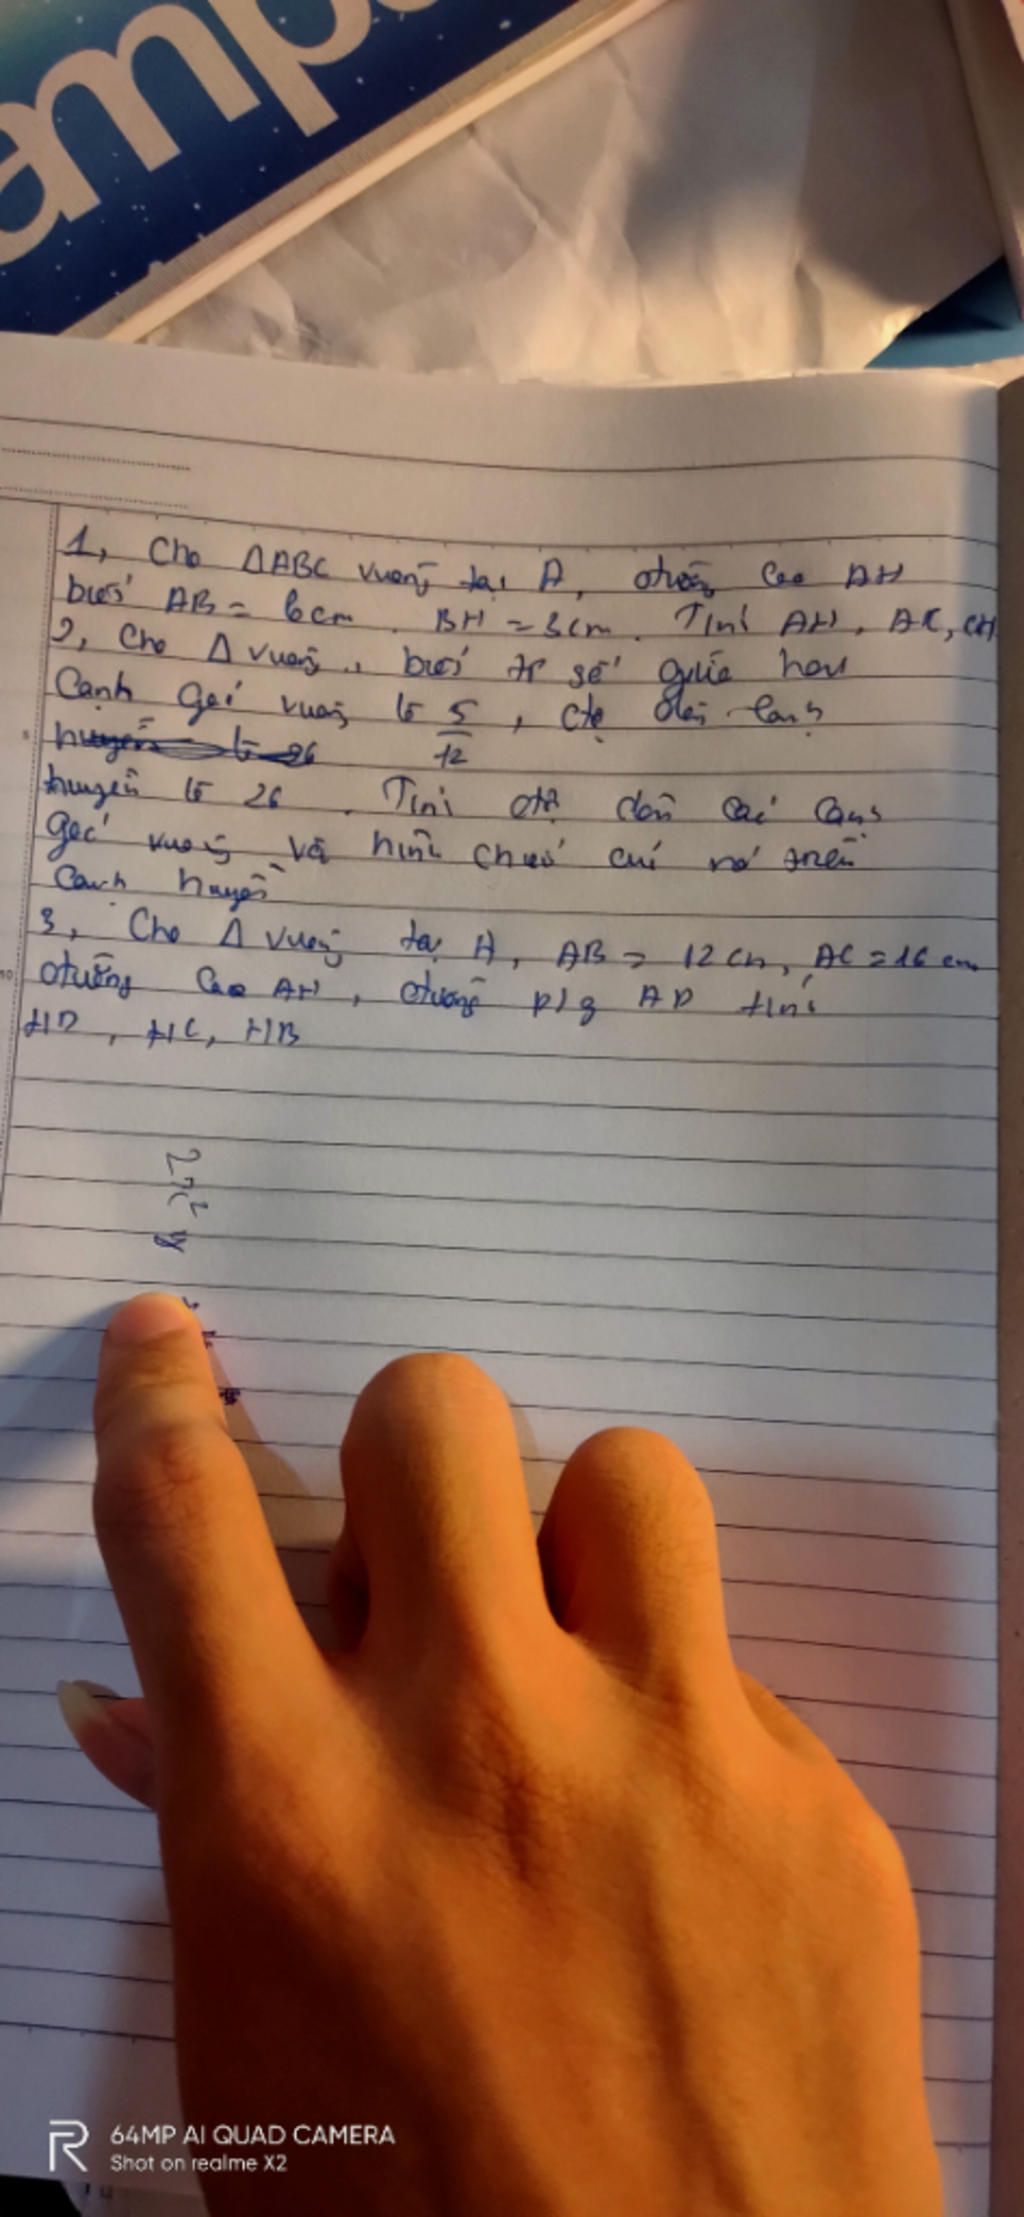 amp
1, Cho ΔABC vuông tại A, đường cao AH
biết AB = 6cm. BH = 3cm. Tính AH, AC, CH
2, Cho Δ vuông, biết tỉ số giữa hai
Cạnh góc vuông là 5/12, độ dài cạnh
huyền là 26
huyền là 26. Tính độ dài các cạnh
góc vuông và hình chiếu của nó trên
Cạnh huyền
3, Cho Δ vuông tại A, AB = 12 cm, AC = 16 cm
đường cao AH, đường p/g AD tính
HD, HC, HB
2x² y
R 64MP AI QUAD CAMERA
Shot on realme X2